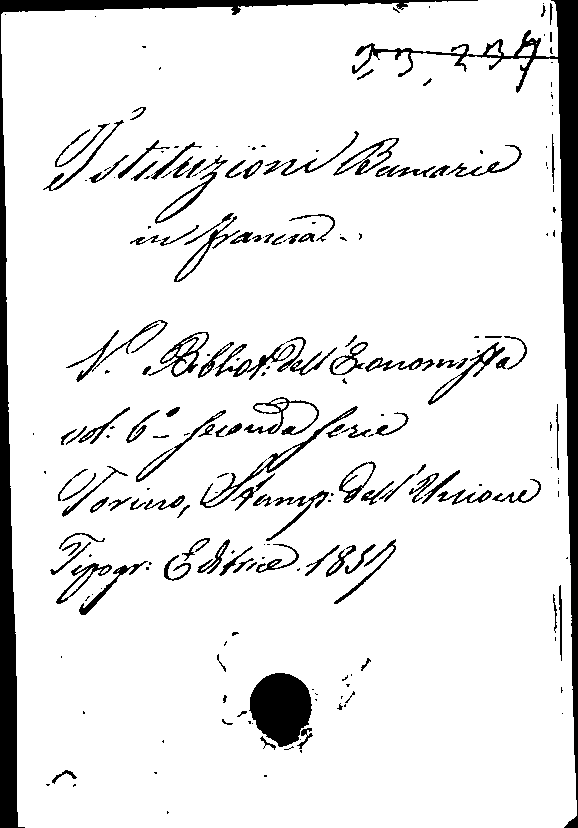 33,237
Istituzioni Bancarie
in Francia..
V. Bibliot: dell'Economista
vol: 6° seconda serie
Torino, Stamp: dell'Unione
Tipogr: Editrice. 1857